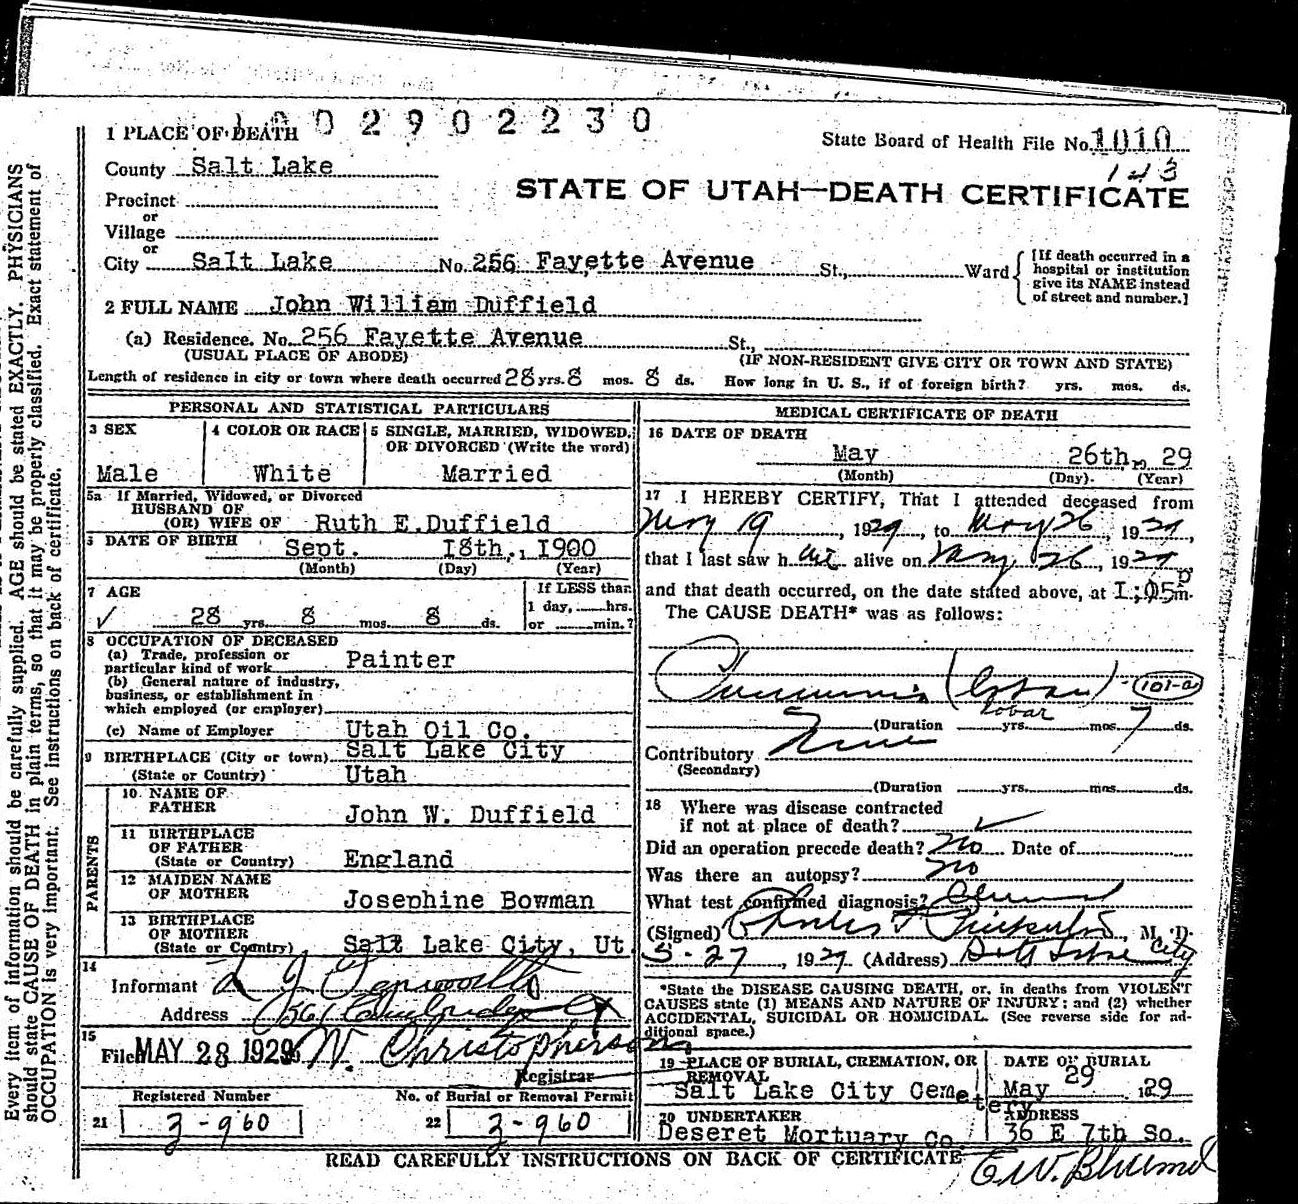 1 PLACE OF DEATH 1002902230
State Board of Health File No. 1010
143
County Salt Lake
STATE OF UTAH—DEATH CERTIFICATE
Precinct
or
Village
or
City Salt Lake No. 256 Fayette Avenue St., Ward
[If death occurred in a
hospital or institution
give its NAME instead
of street and number.]
2 FULL NAME John William Duffield
(a) Residence. No. 256 Fayette Avenue St.,
(USUAL PLACE OF ABODE) (IF NON-RESIDENT GIVE CITY OR TOWN AND STATE)
Length of residence in city or town where death occurred 28 yrs. 8 mos. 8 ds. How long in U. S., if of foreign birth? yrs. mos. ds.
PERSONAL AND STATISTICAL PARTICULARS
3 SEX
Male
4 COLOR OR RACE
White
5 SINGLE, MARRIED, WIDOWED,
OR DIVORCED (Write the word)
Married
5a If Married, Widowed, or Divorced
HUSBAND OF
(OR) WIFE OF Ruth E.Duffield
DATE OF BIRTH Sept. 18th., 1900
(Month) (Day) (Year)
7 AGE
28 yrs. 8 mos. 8 ds.
If LESS than
1 day, hrs.
or min.?
8 OCCUPATION OF DECEASED
(a) Trade, profession or
particular kind of work Painter
(b) General nature of industry,
business, or establishment in
which employed (or employer)
(c) Name of Employer Utah Oil Co.
9 BIRTHPLACE (City or town) Salt Lake City
(State or Country) Utah
PARENTS
10 NAME OF
FATHER John W. Duffield
11 BIRTHPLACE
OF FATHER
(State or Country) England
12 MAIDEN NAME
OF MOTHER Josephine Bowman
13 BIRTHPLACE
OF MOTHER
(State or Country) Salt Lake City, Ut.
14
Informant
Address
15
Filed MAY 28 1929 W. Christopherson
Registrar
Registered Number
21 3-960
No. of Burial or Removal Permit
22 3-960
MEDICAL CERTIFICATE OF DEATH
16 DATE OF DEATH
May 26th, 19 29
(Month) (Day). (Year)
17 I HEREBY CERTIFY, That I attended deceased from
May 19, 1929, to May 26, 1929,
that I last saw h im alive on May 26, 1929,
and that death occurred, on the date stated above, at 1:05 p m.
The CAUSE DEATH* was as follows:
Pneumonia (Lobar) 101-a
Lobar
(Duration yrs. mos. 7 ds.
Contributory None
(Secondary)
(Duration yrs. mos. ds.
18 Where was disease contracted
if not at place of death?
Did an operation precede death? No Date of
Was there an autopsy? No
What test confirmed diagnosis? Clinical
(Signed) Charles F. Pinkerton, M. D.
5-27, 1929 (Address) Salt Lake City
*State the DISEASE CAUSING DEATH, or, in deaths from VIOLENT
CAUSES state (1) MEANS AND NATURE OF INJURY; and (2) whether
ACCIDENTAL, SUICIDAL OR HOMICIDAL. (See reverse side for ad-
ditional space.)
19 PLACE OF BURIAL, CREMATION, OR
REMOVAL
Salt Lake City Cemetery
DATE OF BURIAL
May 29 1929
20 UNDERTAKER
Deseret Mortuary Co.
ADDRESS
36 E 7th So.
READ CAREFULLY INSTRUCTIONS ON BACK OF CERTIFICATE
Every item of information should be carefully supplied. AGE should be stated EXACTLY. PHYSICIANS
should state CAUSE OF DEATH in plain terms, so that it may be properly classified. Exact statement of
OCCUPATION is very important. See instructions on back of certificate.